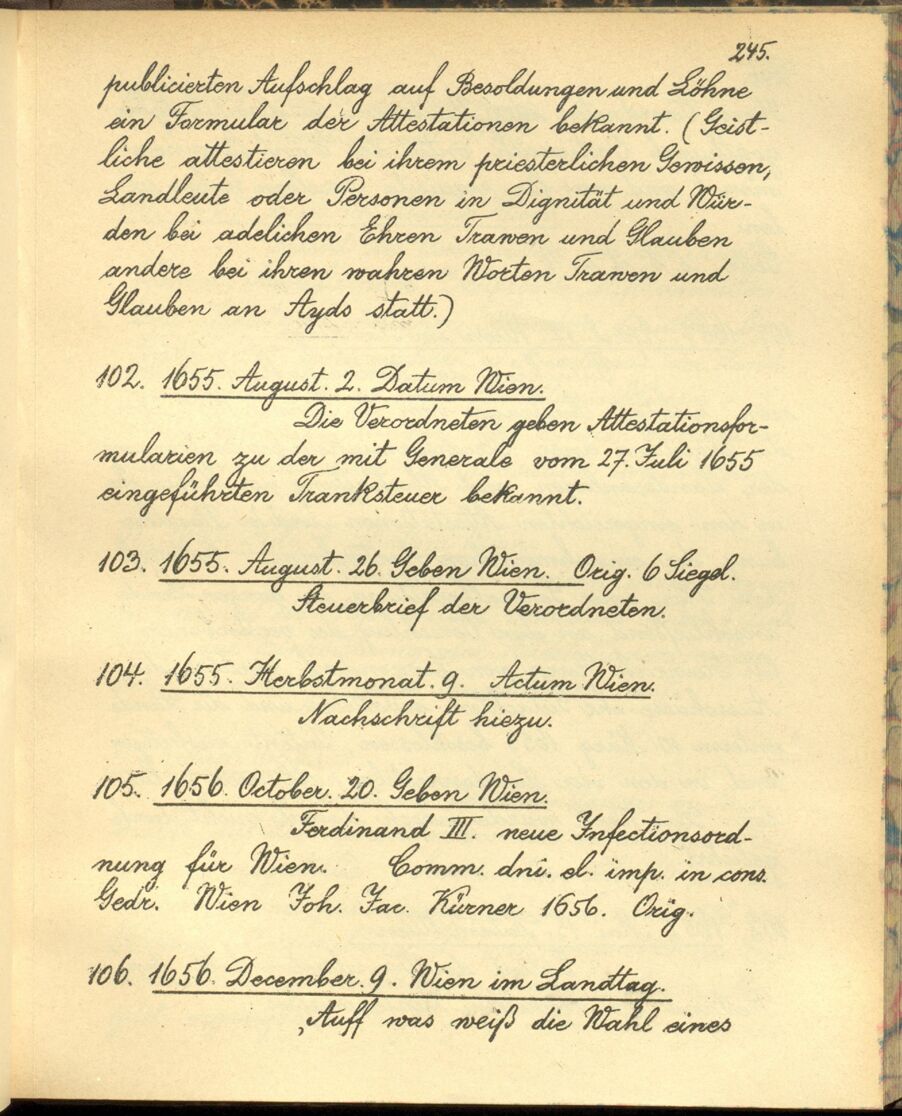 245.
publicierten Aufschlag auf Besoldungen und Löhne
ein Formular der Attestationen bekannt. (Geist-
liche attestieren bei ihrem priesterlichen Gewissen,
Landleute oder Personen in Dignität und Wür-
den bei adelichen Ehren Trawen und Glauben
andere bei ihren wahren Worten Trawen und
Glauben an Ayds statt.)
102. 1655. August. 2. Datum Wien.
Die Verordneten geben Attestationsfor-
mularien zu der mit Generale vom 27. Juli 1655
eingeführten Tranksteuer bekannt.
103. 1655. August. 26. Geben Wien. Orig. 6 Siegel.
Steuerbrief der Verordneten.
104. 1655. Herbstmonat. 9. Actum Wien.
Nachschrift hiezu.
105. 1656. October. 20. Geben Wien.
Ferdinand III. neue Infectionsord-
nung für Wien. Comm. dni. el. imp. in cons.
Gedr. Wien Joh. Jac. Kürner 1656. Orig.
106. 1656. December. 9. Wien im Landtag.
„Auff was weiß die Wahl eines